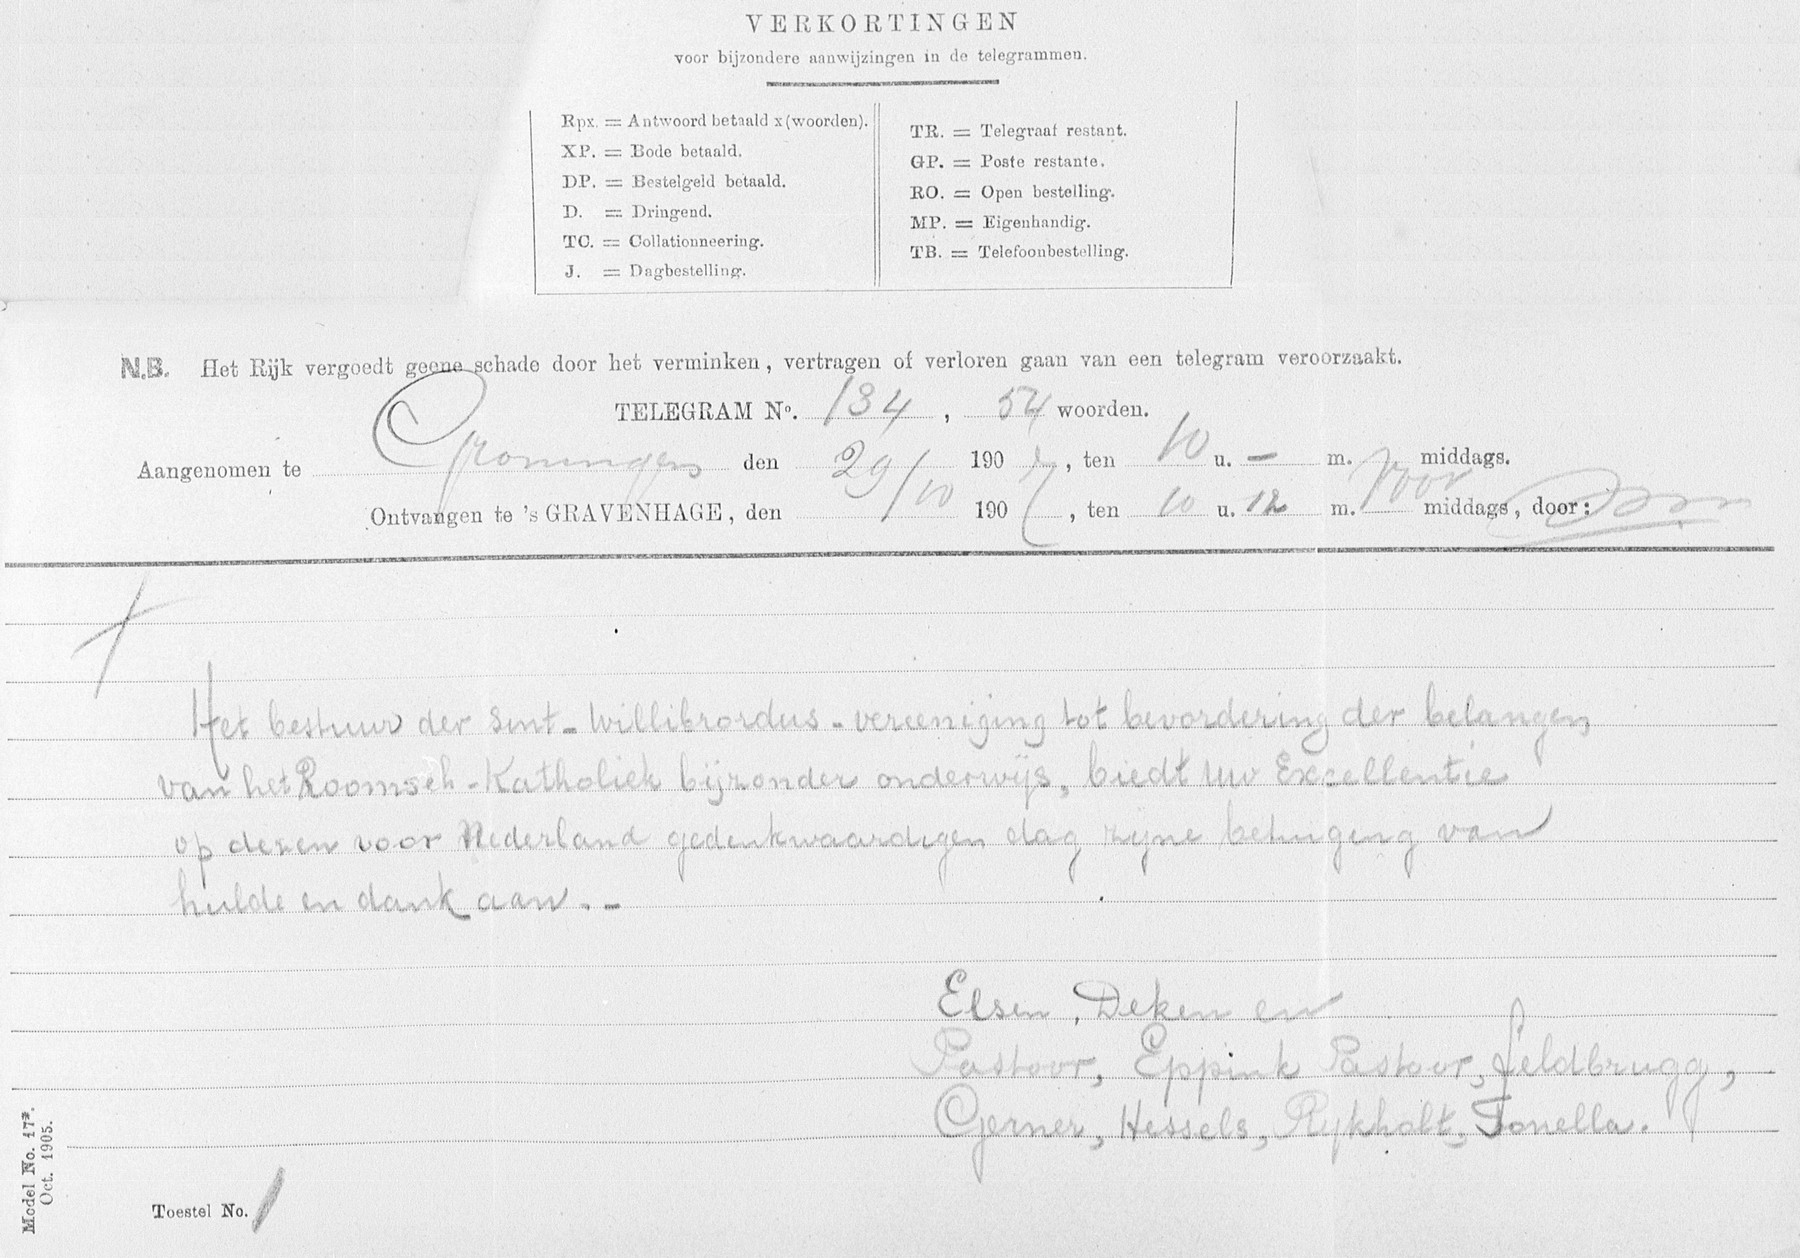 VERKORTINGEN
voor bijzondere aanwijzingen in de telegrammen.
Rpx. = Antwoord betaald x (woorden).
XP. = Bode betaald.
DP. = Bestelgeld betaald.
D. = Dringend.
TC. = Collationneering.
J. = Dagbestelling.
TR. = Telegraaf restant.
GP. = Poste restante.
RO. = Open bestelling.
MP. = Eigenhandig.
TB. = Telefoonbestelling.
N.B. Het Rijk vergoedt geene schade door het verminken, vertragen of verloren gaan van een telegram veroorzaakt.
TELEGRAM No. 134, 54 woorden.
Aangenomen te Groningen den 29/10 190 , ten 10 u. – m. middags.
Ontvangen te 's GRAVENHAGE, den 190 , ten 10 u. 12 m. voor middags, door:
Het bestuur der Sint-Willibrordus-vereeniging tot bevordering der belangen
van het Roomsch-Katholiek bijzonder onderwijs, biedt uw Excellentie
op dezen voor Nederland gedenkwaardigen dag zyne betuiging van
hulde en dank aan. -
Elsen, Deken en
Pastoor, Eppink Pastoor, feldbrugg,
Gerner, Hessels, Rykholt, Tonella.
Model No. 17*.
Oct. 1905.
Toestel No. 1